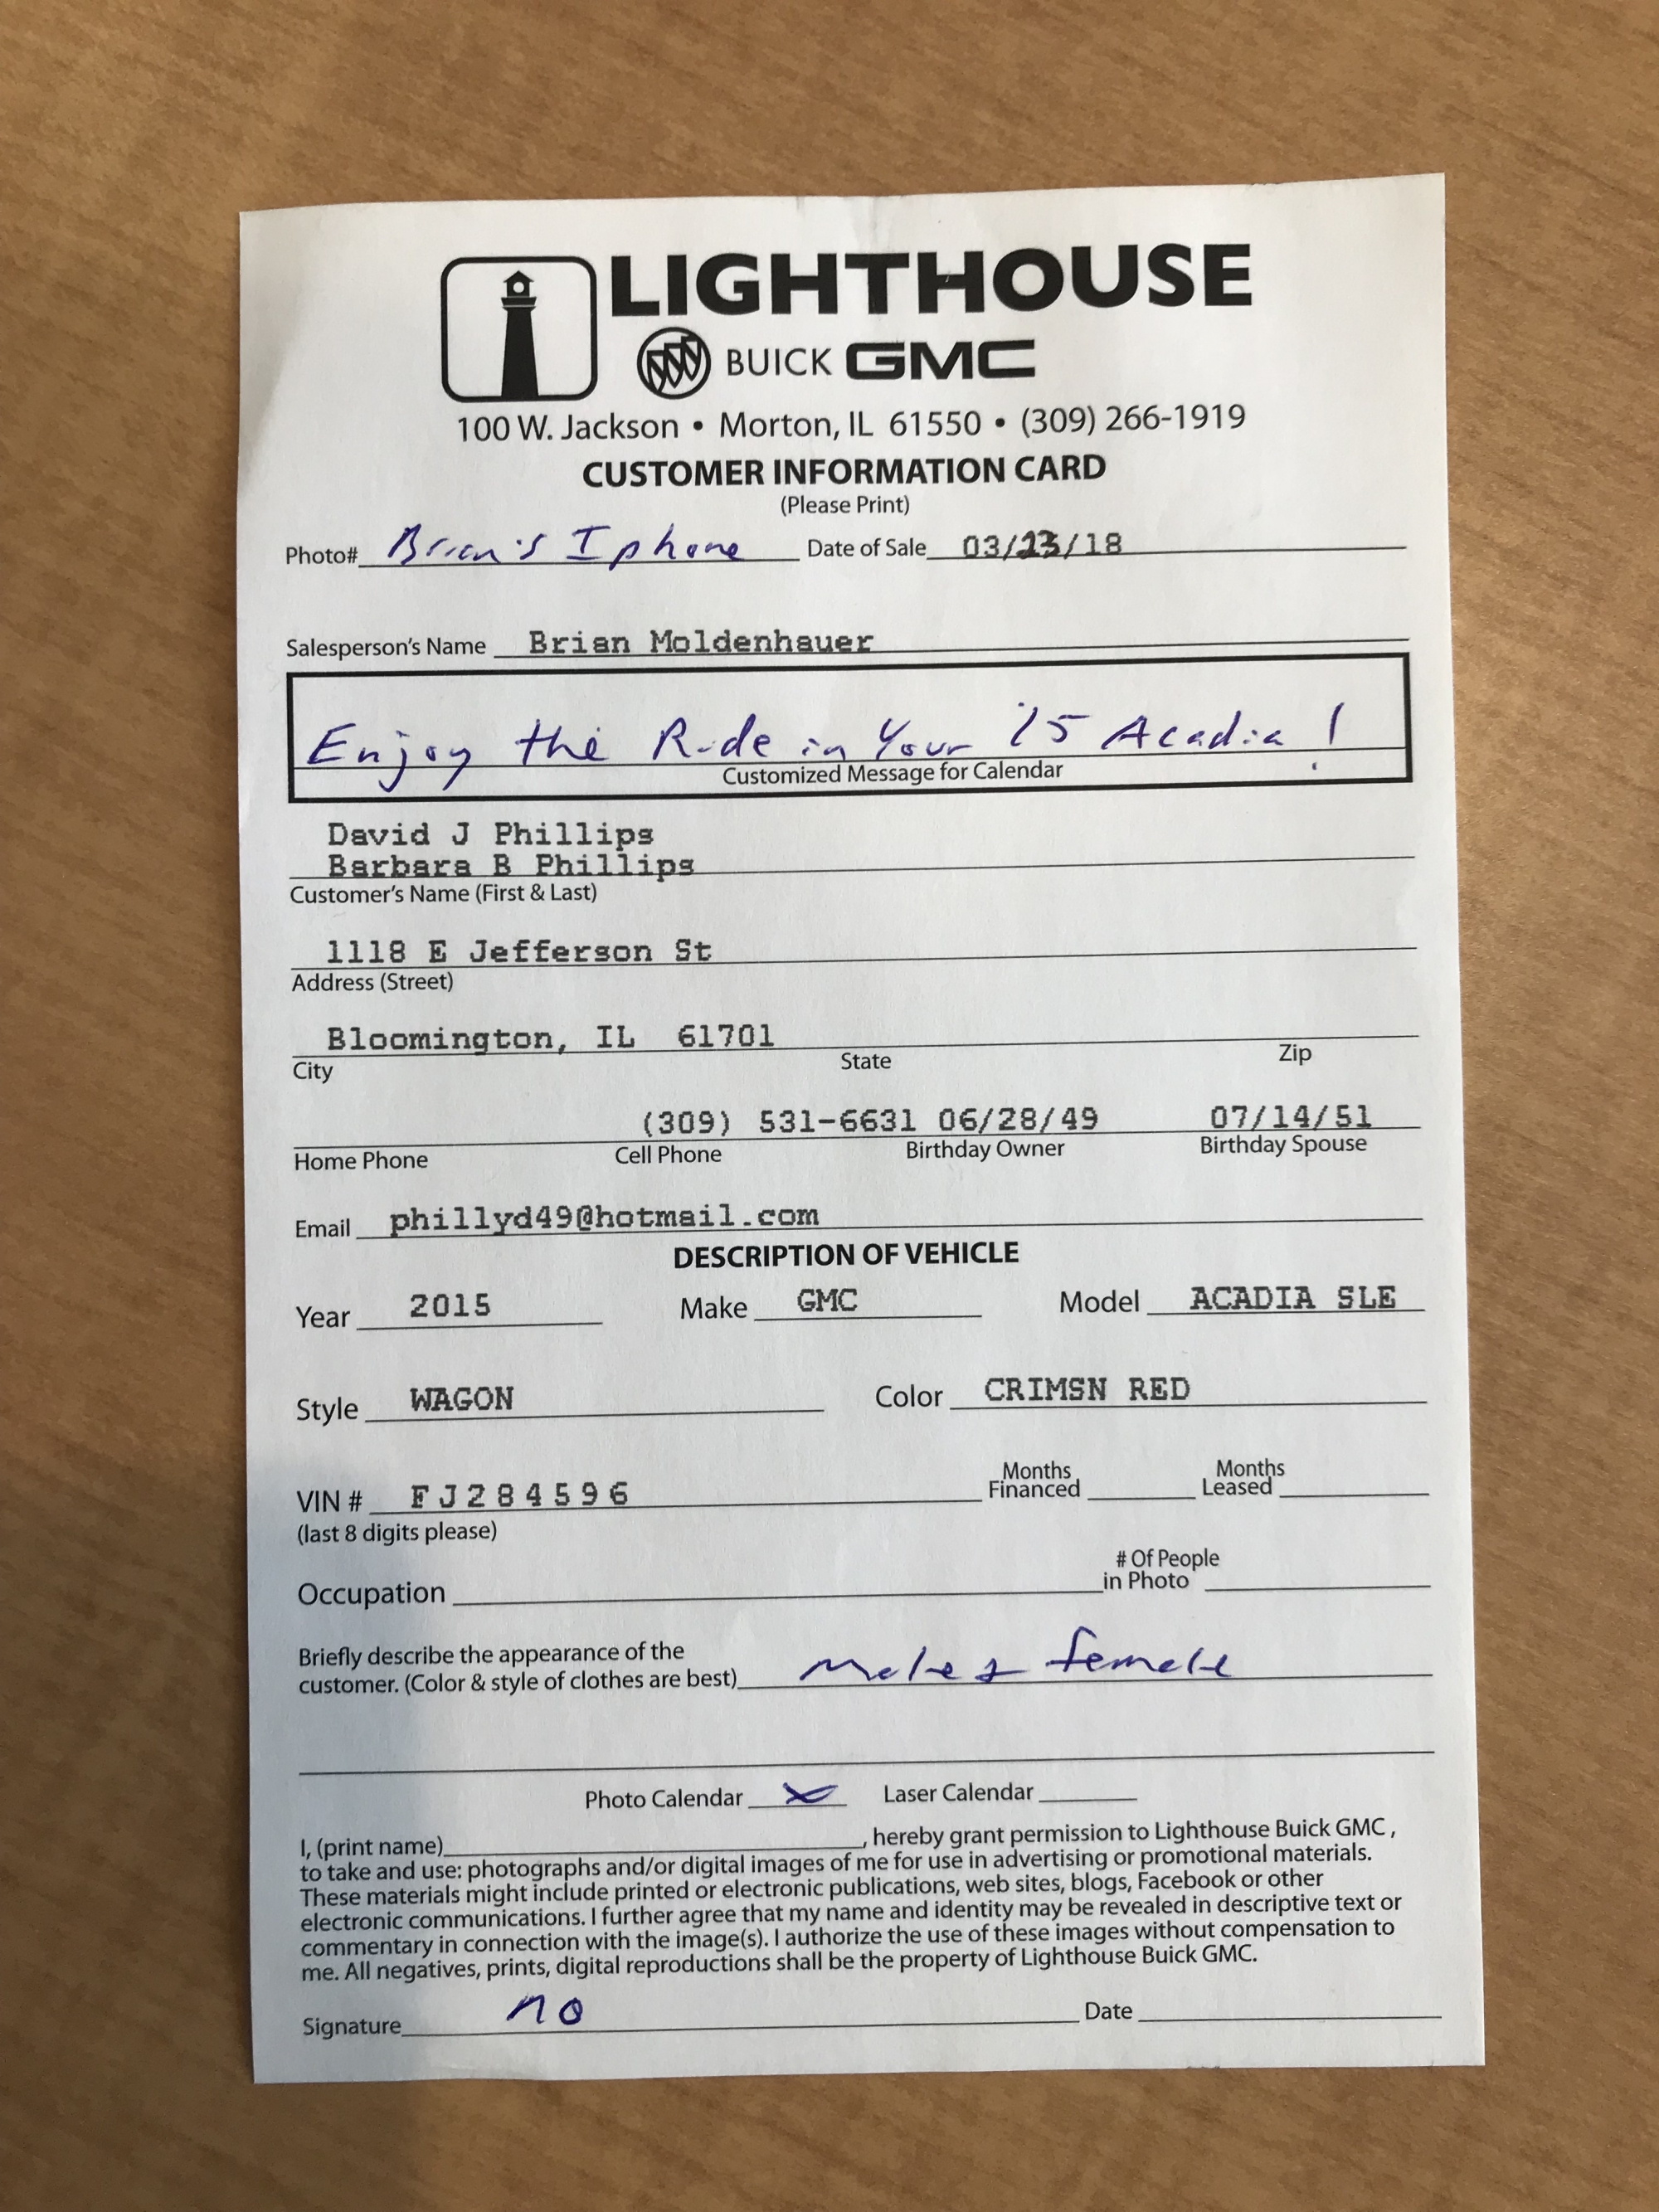 LIGHTHOUSE
BUICK GMC
100 W. Jackson • Morton, IL 61550 • (309) 266-1919
CUSTOMER INFORMATION CARD
(Please Print)
Photo# Brian's Iphone Date of Sale 03/23/18
Salesperson's Name Brian Moldenhauer
Enjoy the Ride in Your '15 Acadia!
Customized Message for Calendar
David J Phillips
Barbara B Phillips
Customer's Name (First & Last)
1118 E Jefferson St
Address (Street)
Bloomington, IL 61701
City State Zip
(309) 531-6631 06/28/49 07/14/51
Home Phone Cell Phone Birthday Owner Birthday Spouse
Email phillyd49@hotmail.com
DESCRIPTION OF VEHICLE
Year 2015 Make GMC Model ACADIA SLE
Style WAGON Color CRIMSN RED
VIN # FJ284596 Months Financed Months Leased
(last 8 digits please)
Occupation # Of People in Photo
Briefly describe the appearance of the
customer. (Color & style of clothes are best) Male & female
Photo Calendar X Laser Calendar
I, (print name) , hereby grant permission to Lighthouse Buick GMC ,
to take and use: photographs and/or digital images of me for use in advertising or promotional materials.
These materials might include printed or electronic publications, web sites, blogs, Facebook or other
electronic communications. I further agree that my name and identity may be revealed in descriptive text or
commentary in connection with the image(s). I authorize the use of these images without compensation to
me. All negatives, prints, digital reproductions shall be the property of Lighthouse Buick GMC.
Signature no Date